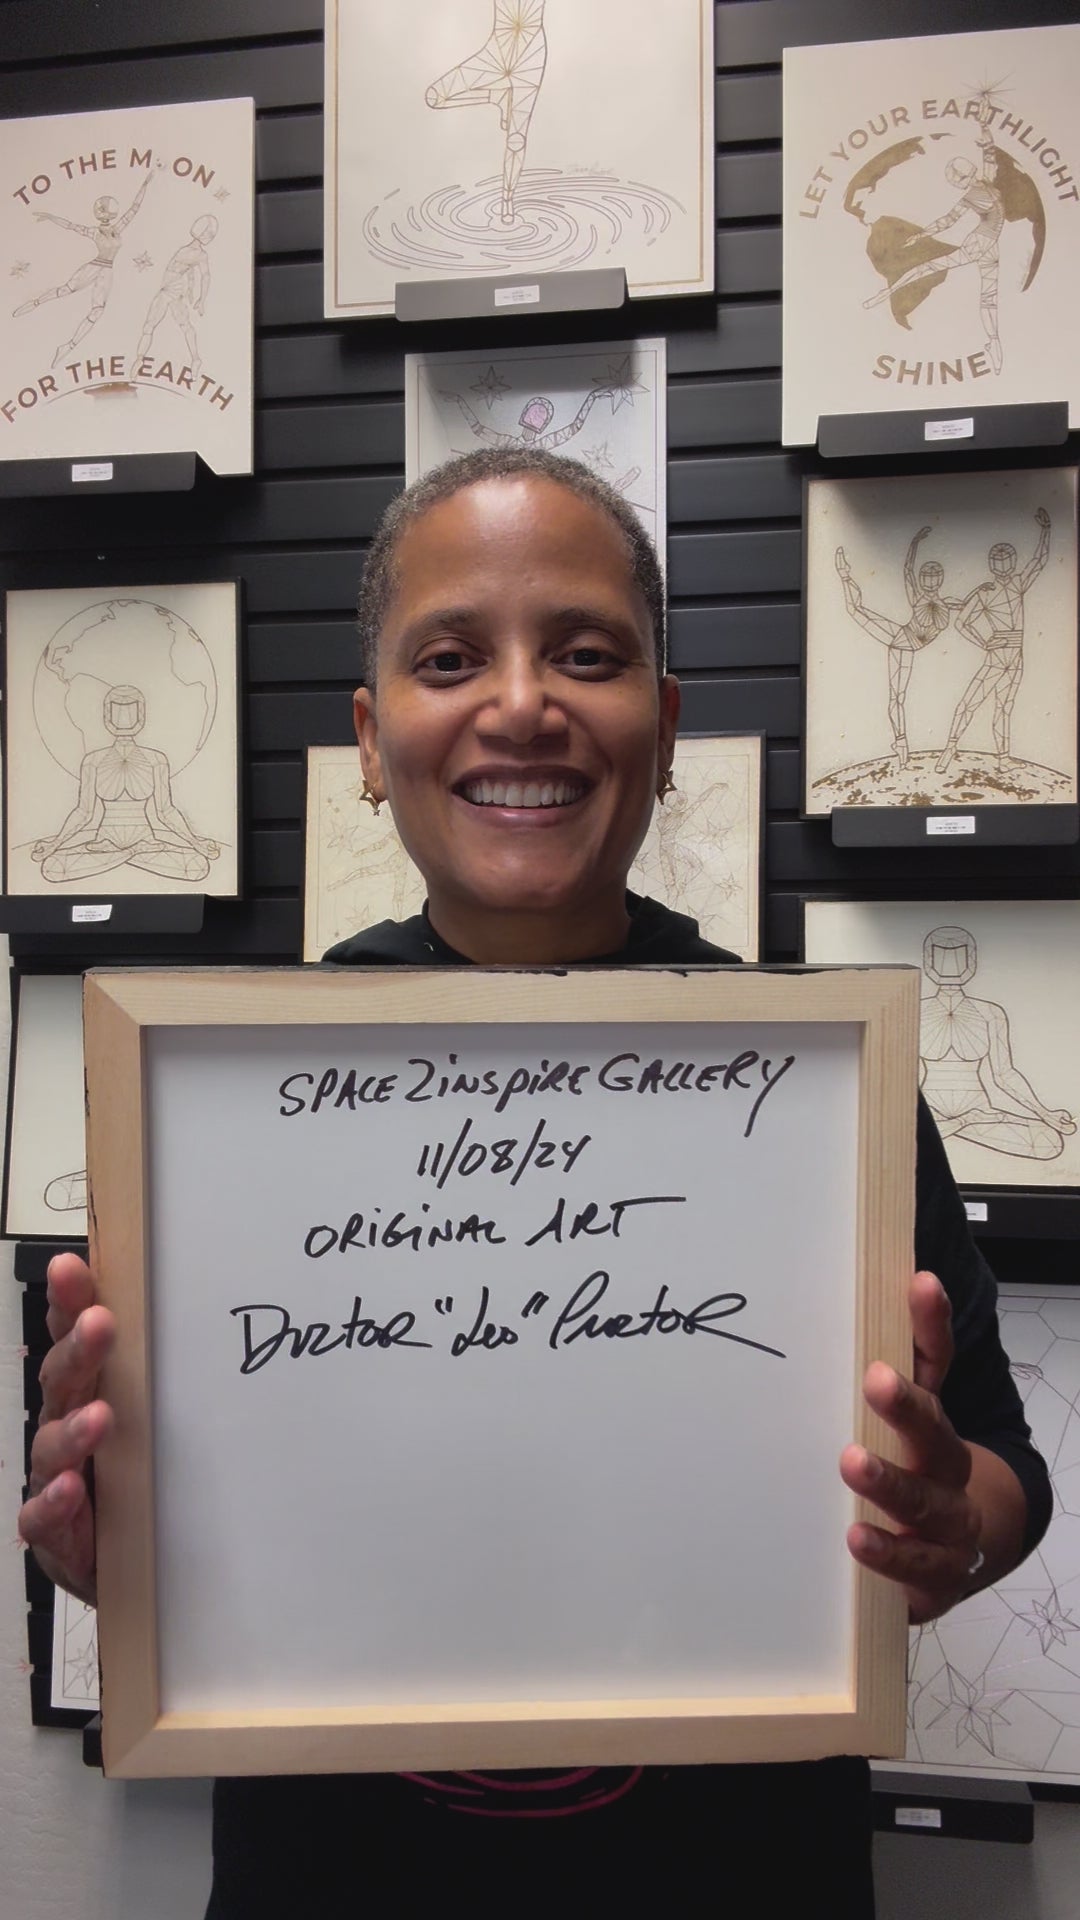 TO THE MOON
FOR THE EARTH
LET YOUR EARTHLIGHT
SHINE
SPACE2inspire GALLERY
11/08/24
ORIGINAL ART
"Leo"